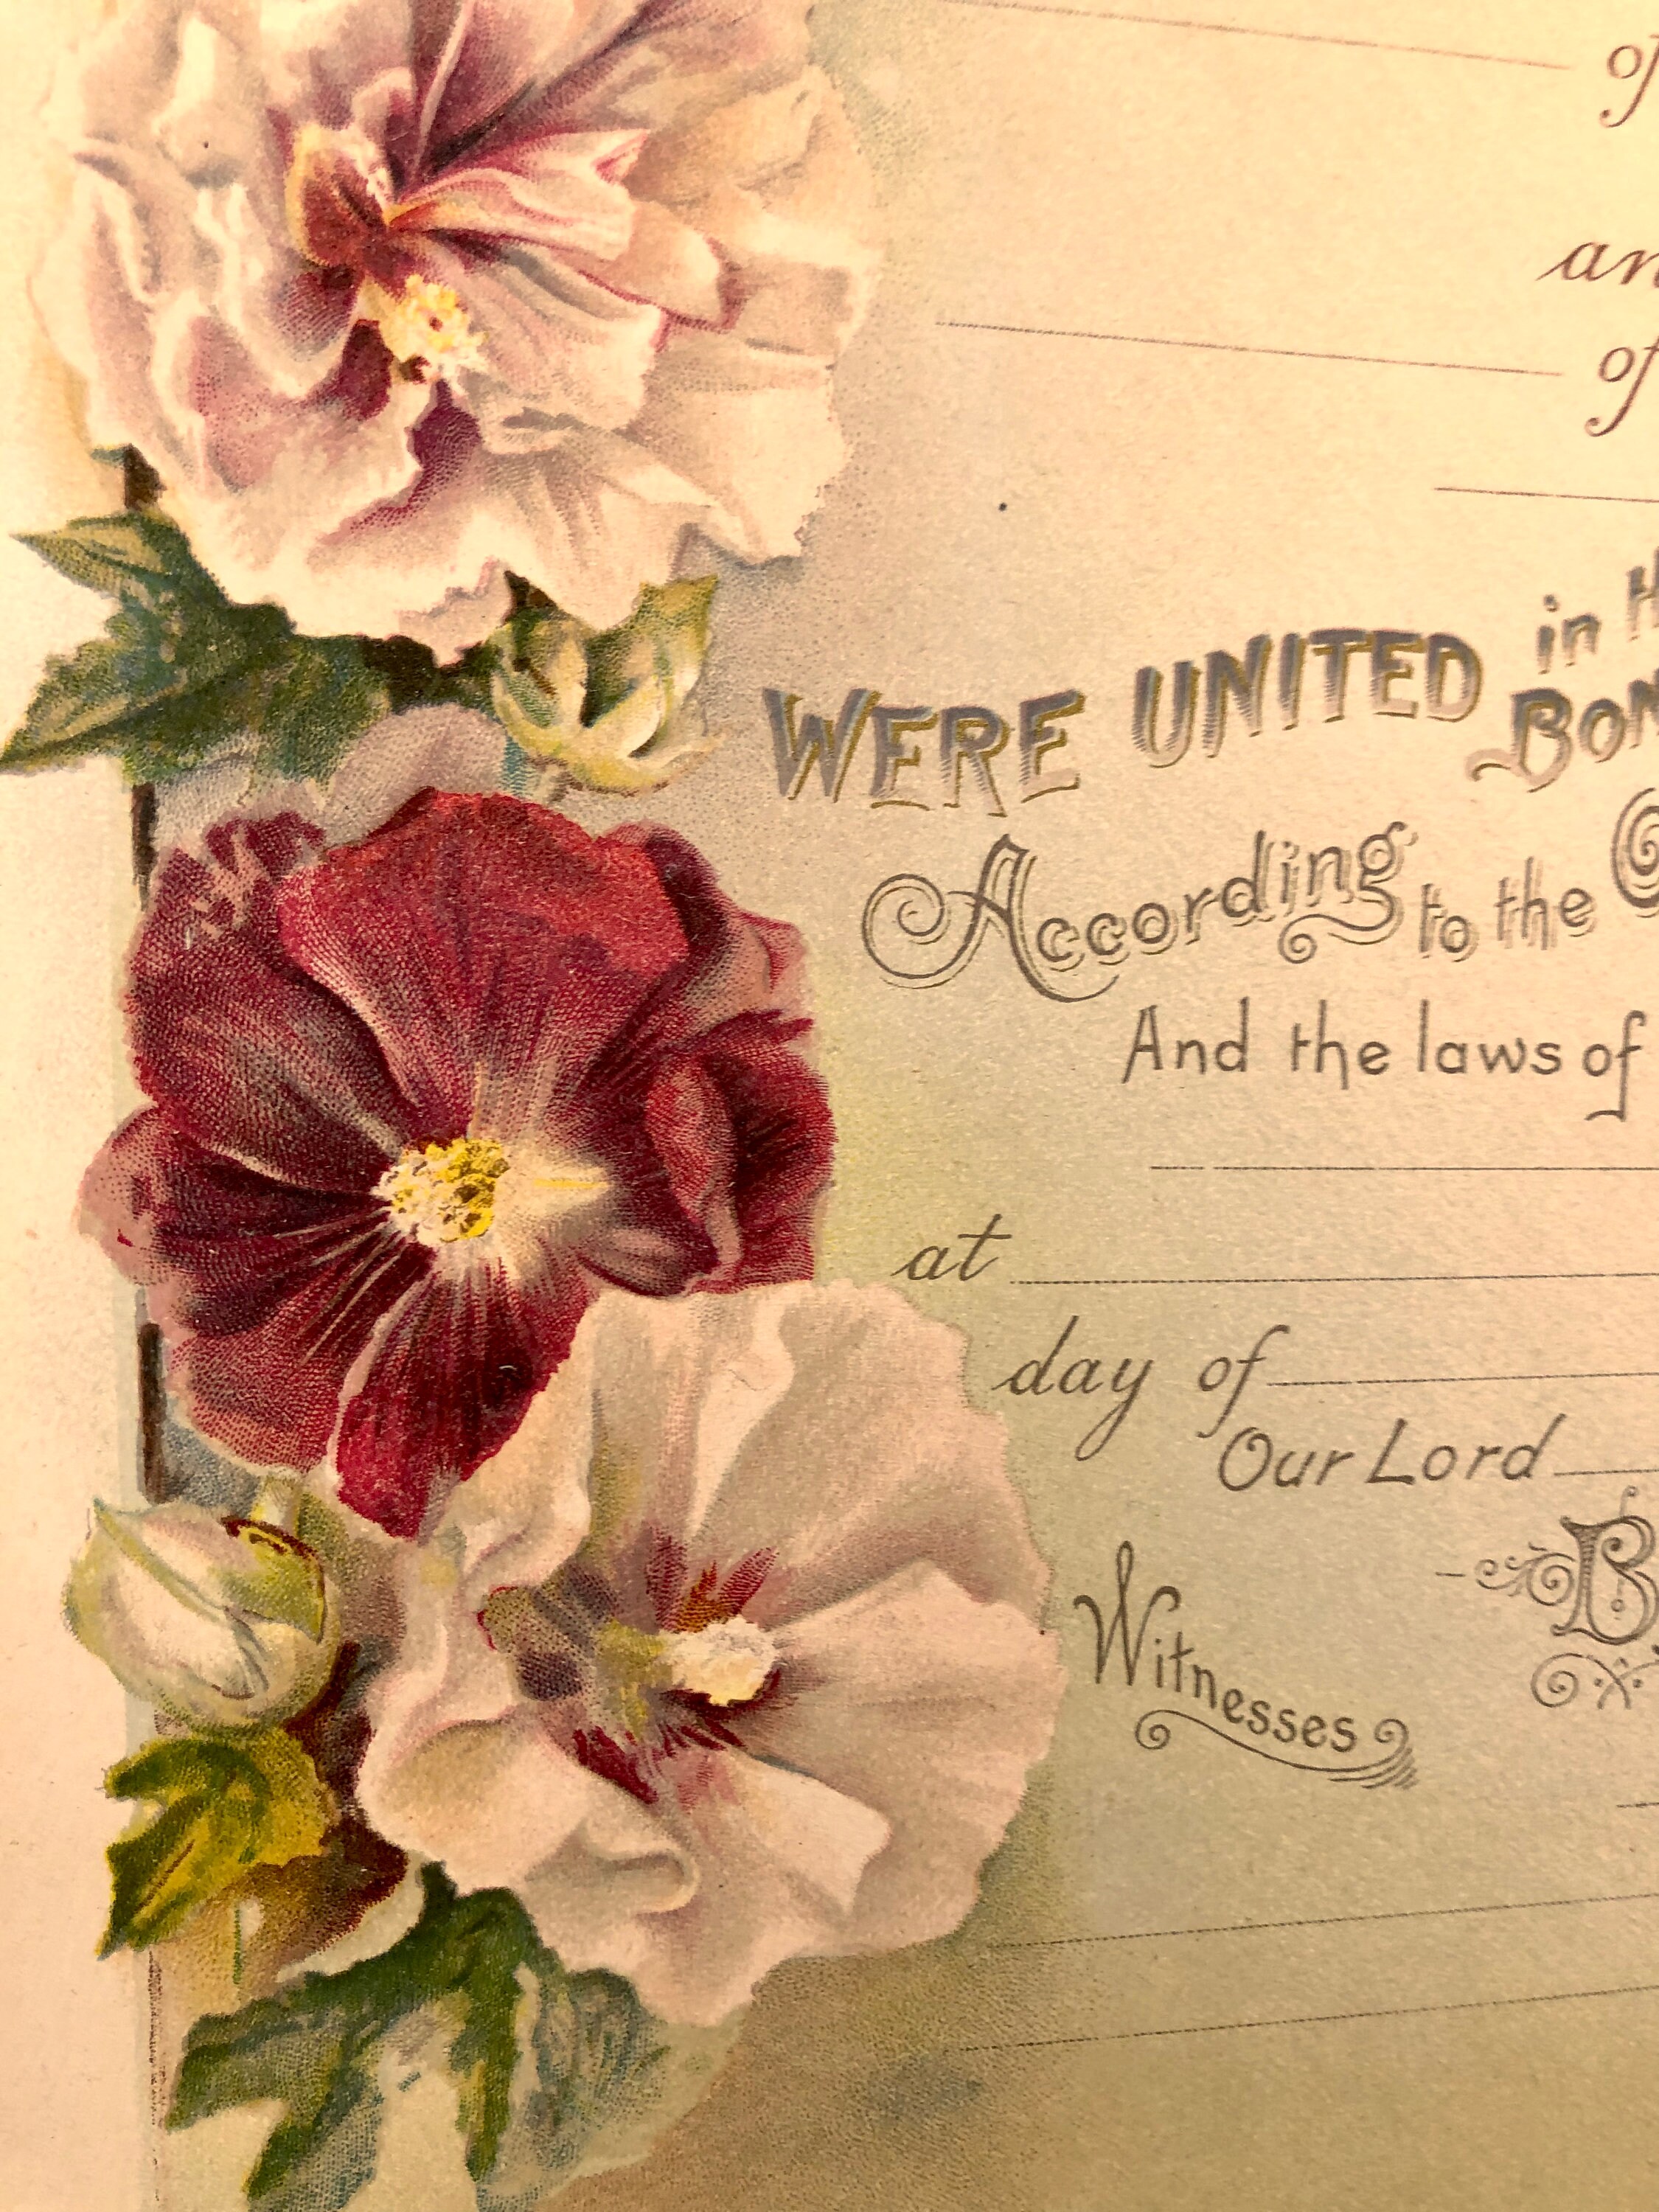 of
and
of
WERE UNITED in H
BON
According to the
And the laws of
at
day of
Our Lord
Witnesses